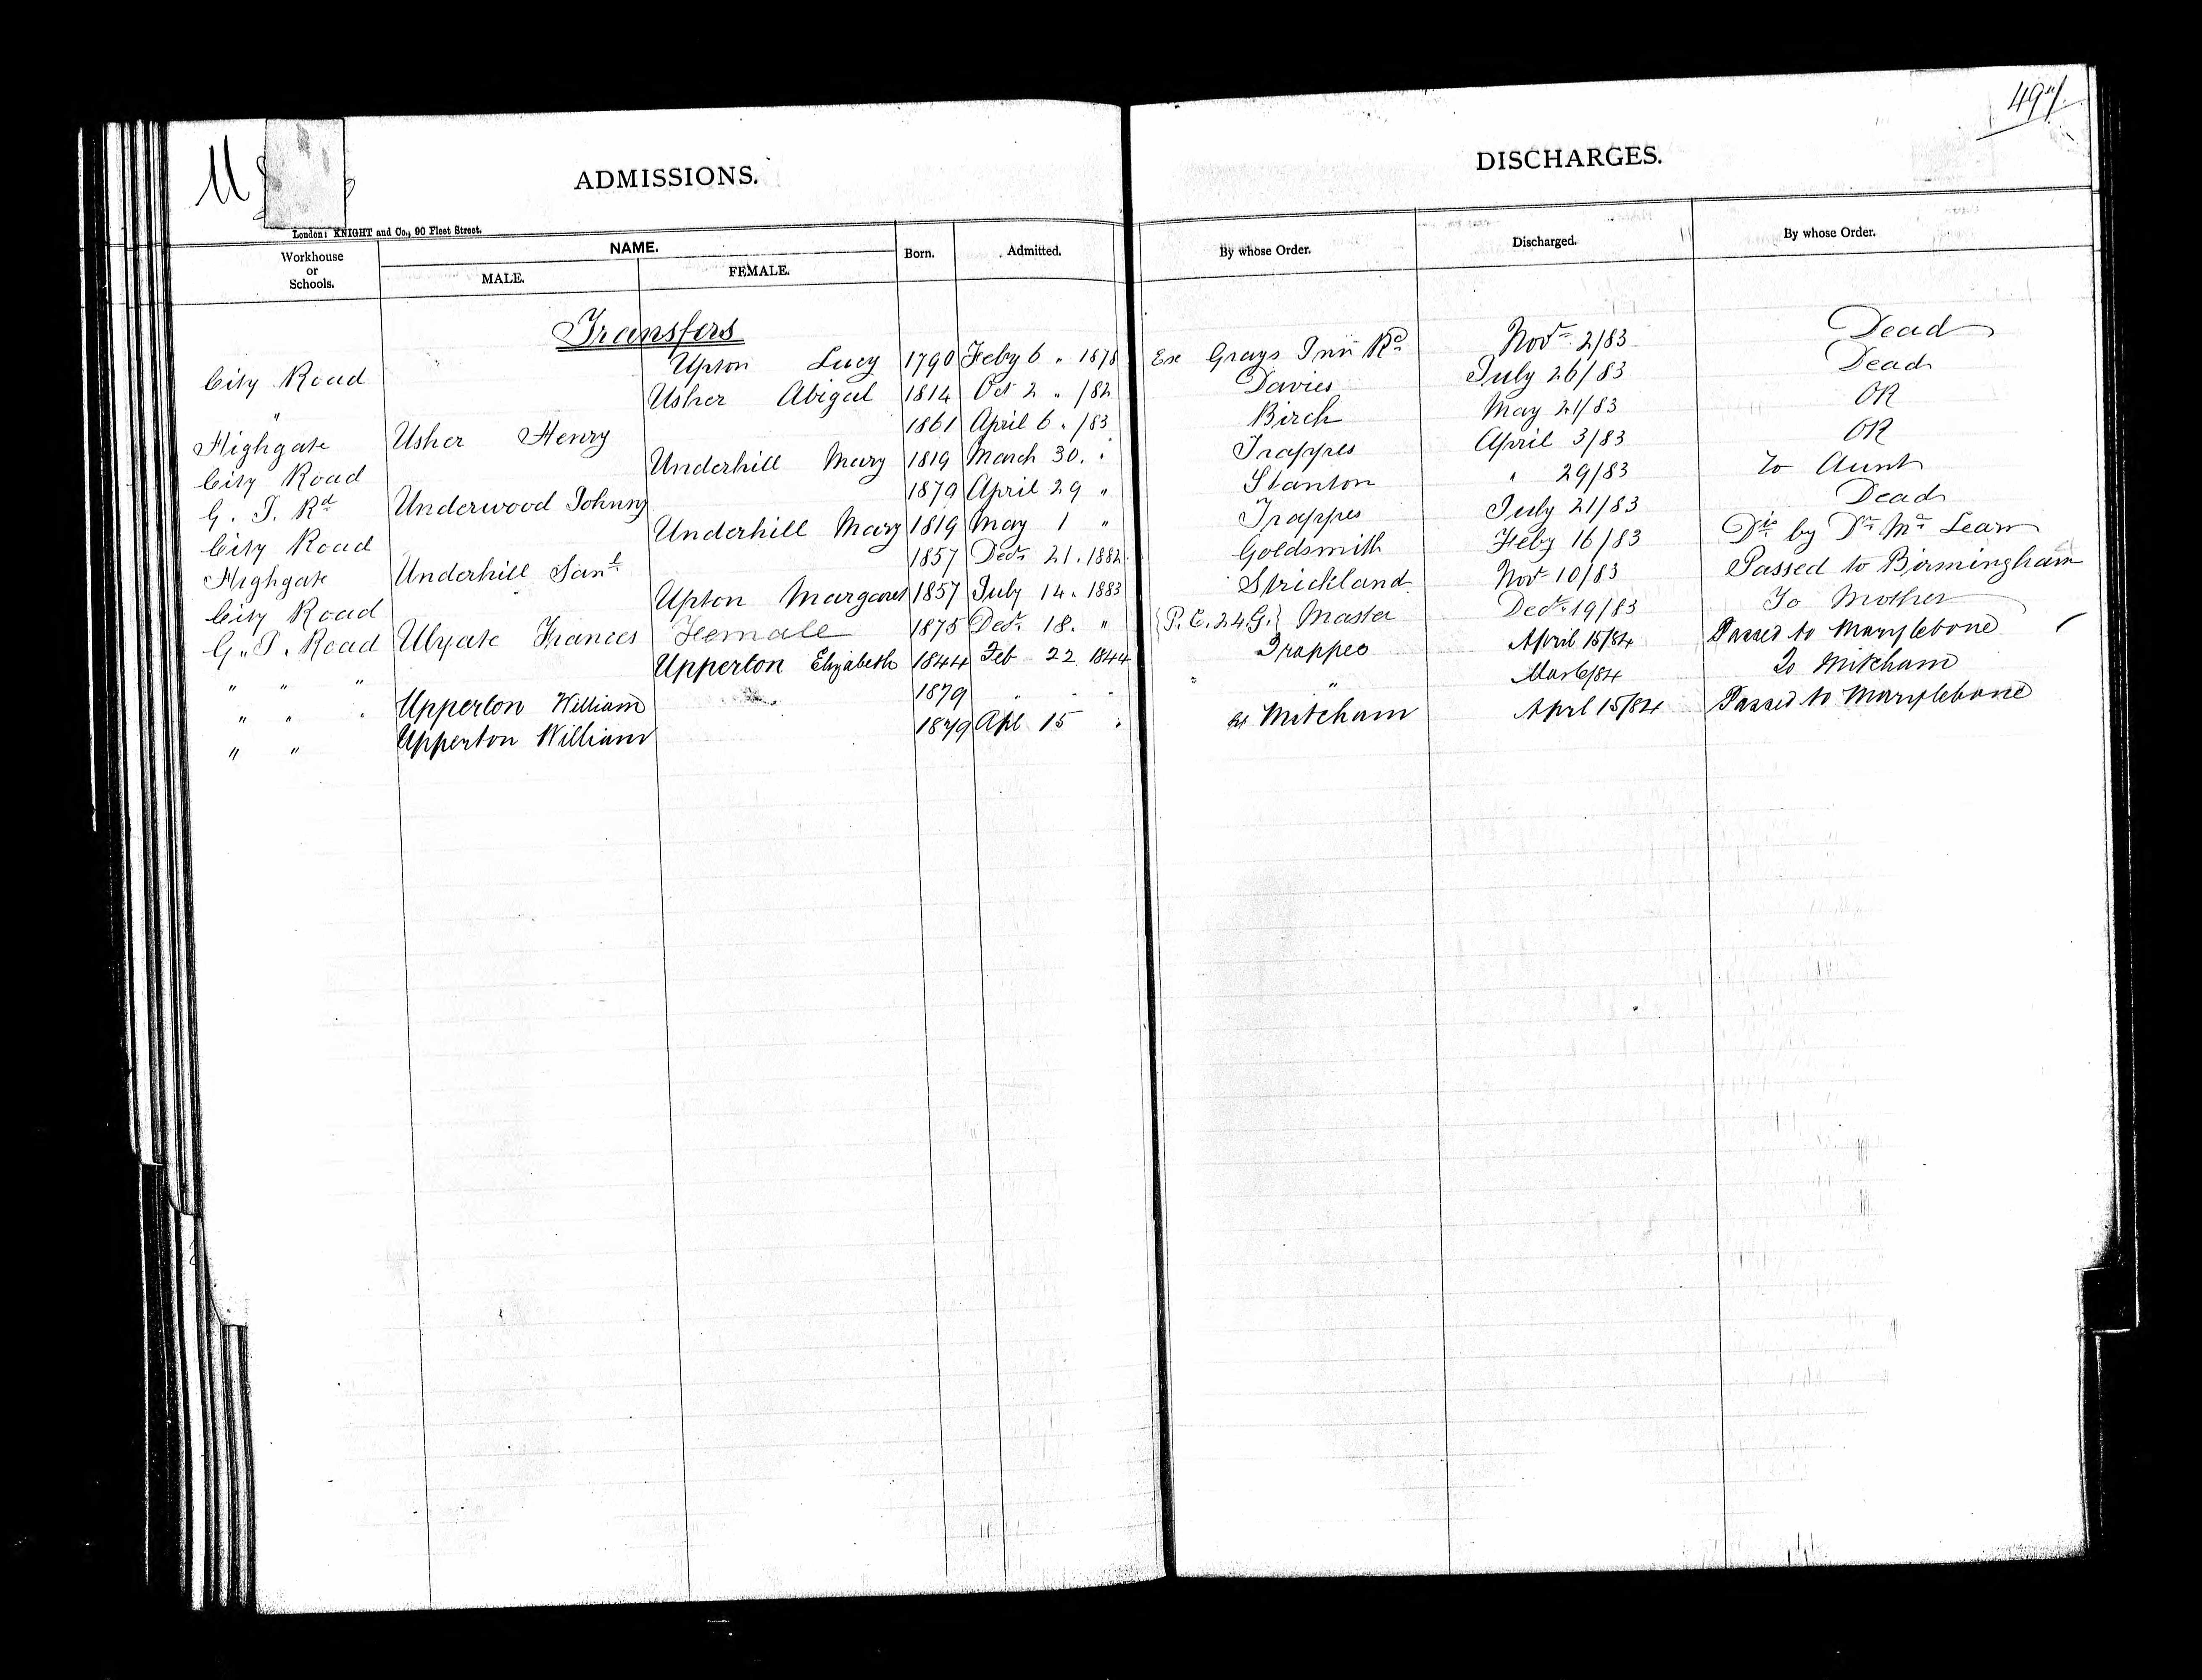 U
497
ADMISSIONS.
DISCHARGES.
London: KNIGHT and Co., 90 Fleet Street.
Workhouse or Schools. NAME. MALE. FEMALE. Born. Admitted. By whose Order. Discharged. By whose Order.
Transfers
City Road Upton Lucy 1790 Feby 6 " 1878 Ex Grays Inn Rd Novr 2/83 Dead
" Usher Abigal 1814 Oct 2 " /82 Davies July 26/83 Dead
Highgate Usher Henry 1861 April 6 " /83 Birch May 21/83 OR
City Road Underhill Mary 1819 March 30 " Trappes April 3/83 OR
G. I. Rd Underwood Johnny 1879 April 29 " Stanton " 29/83 To Aunt
City Road Underhill Mary 1819 May 1 " Trappes July 21/83 Dead
Highgate Underhill Saml 1857 Decr 21. 1882 Goldsmith Feby 16/83 Dis by Dr Mc Learn
City Road Upton Margaret 1857 July 14 " 1883 Strickland Novr 10/83 Passed to Birmingham
G. I. Road Ulyate Frances Female 1875 Decr 18. " {P.C. 24.G.} Master Decr 19/83 To Mother
" " " Upperton Elizabeth 1844 Feb 22 1844 Trappes April 15/84 Passed to Marylebone
" " " Upperton William 1879 " " " " Mar 6/84 To Mitcham
" " Upperton William 1879 Apl 15 " Mitcham April 15/84 Passed to Marylebone